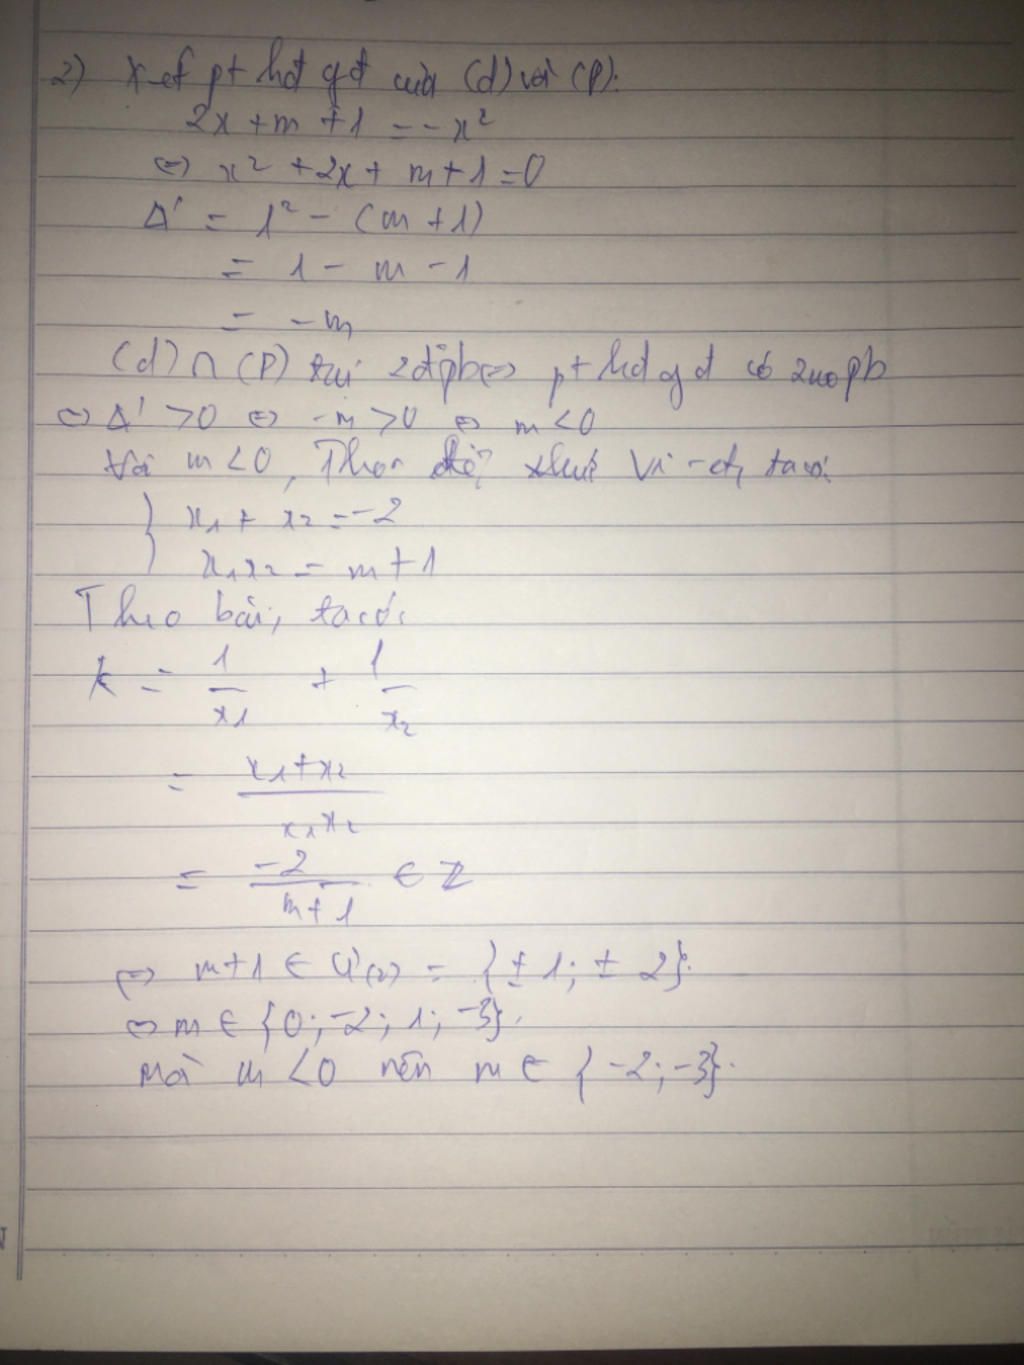 2) Xét pt hđ gđ của (d) với (P):
2x + m + 1 = -x²
⇔ x² + 2x + m + 1 = 0
Δ' = 1² - (m + 1)
= 1 - m - 1
= -m
(d) ∩ (P) tại 2 đ pb ⇔ pt hđ gđ có 2 no pb
⇔ Δ' > 0 ⇔ -m > 0 ⇔ m < 0
Với m < 0, Theo hệ thức Vi-ét, ta có:
{ x₁ + x₂ = -2
x₁x₂ = m + 1
Theo bài, ta có:
k = 1/x₁ + 1/x₂
= (x₁ + x₂)/(x₁x₂)
= -2/(m + 1) ∈ Z
⇔ m + 1 ∈ Ư(2) = {±1; ±2}.
⇔ m ∈ {0; -2; 1; -3}.
Mà m < 0 nên m ∈ {-2; -3}.